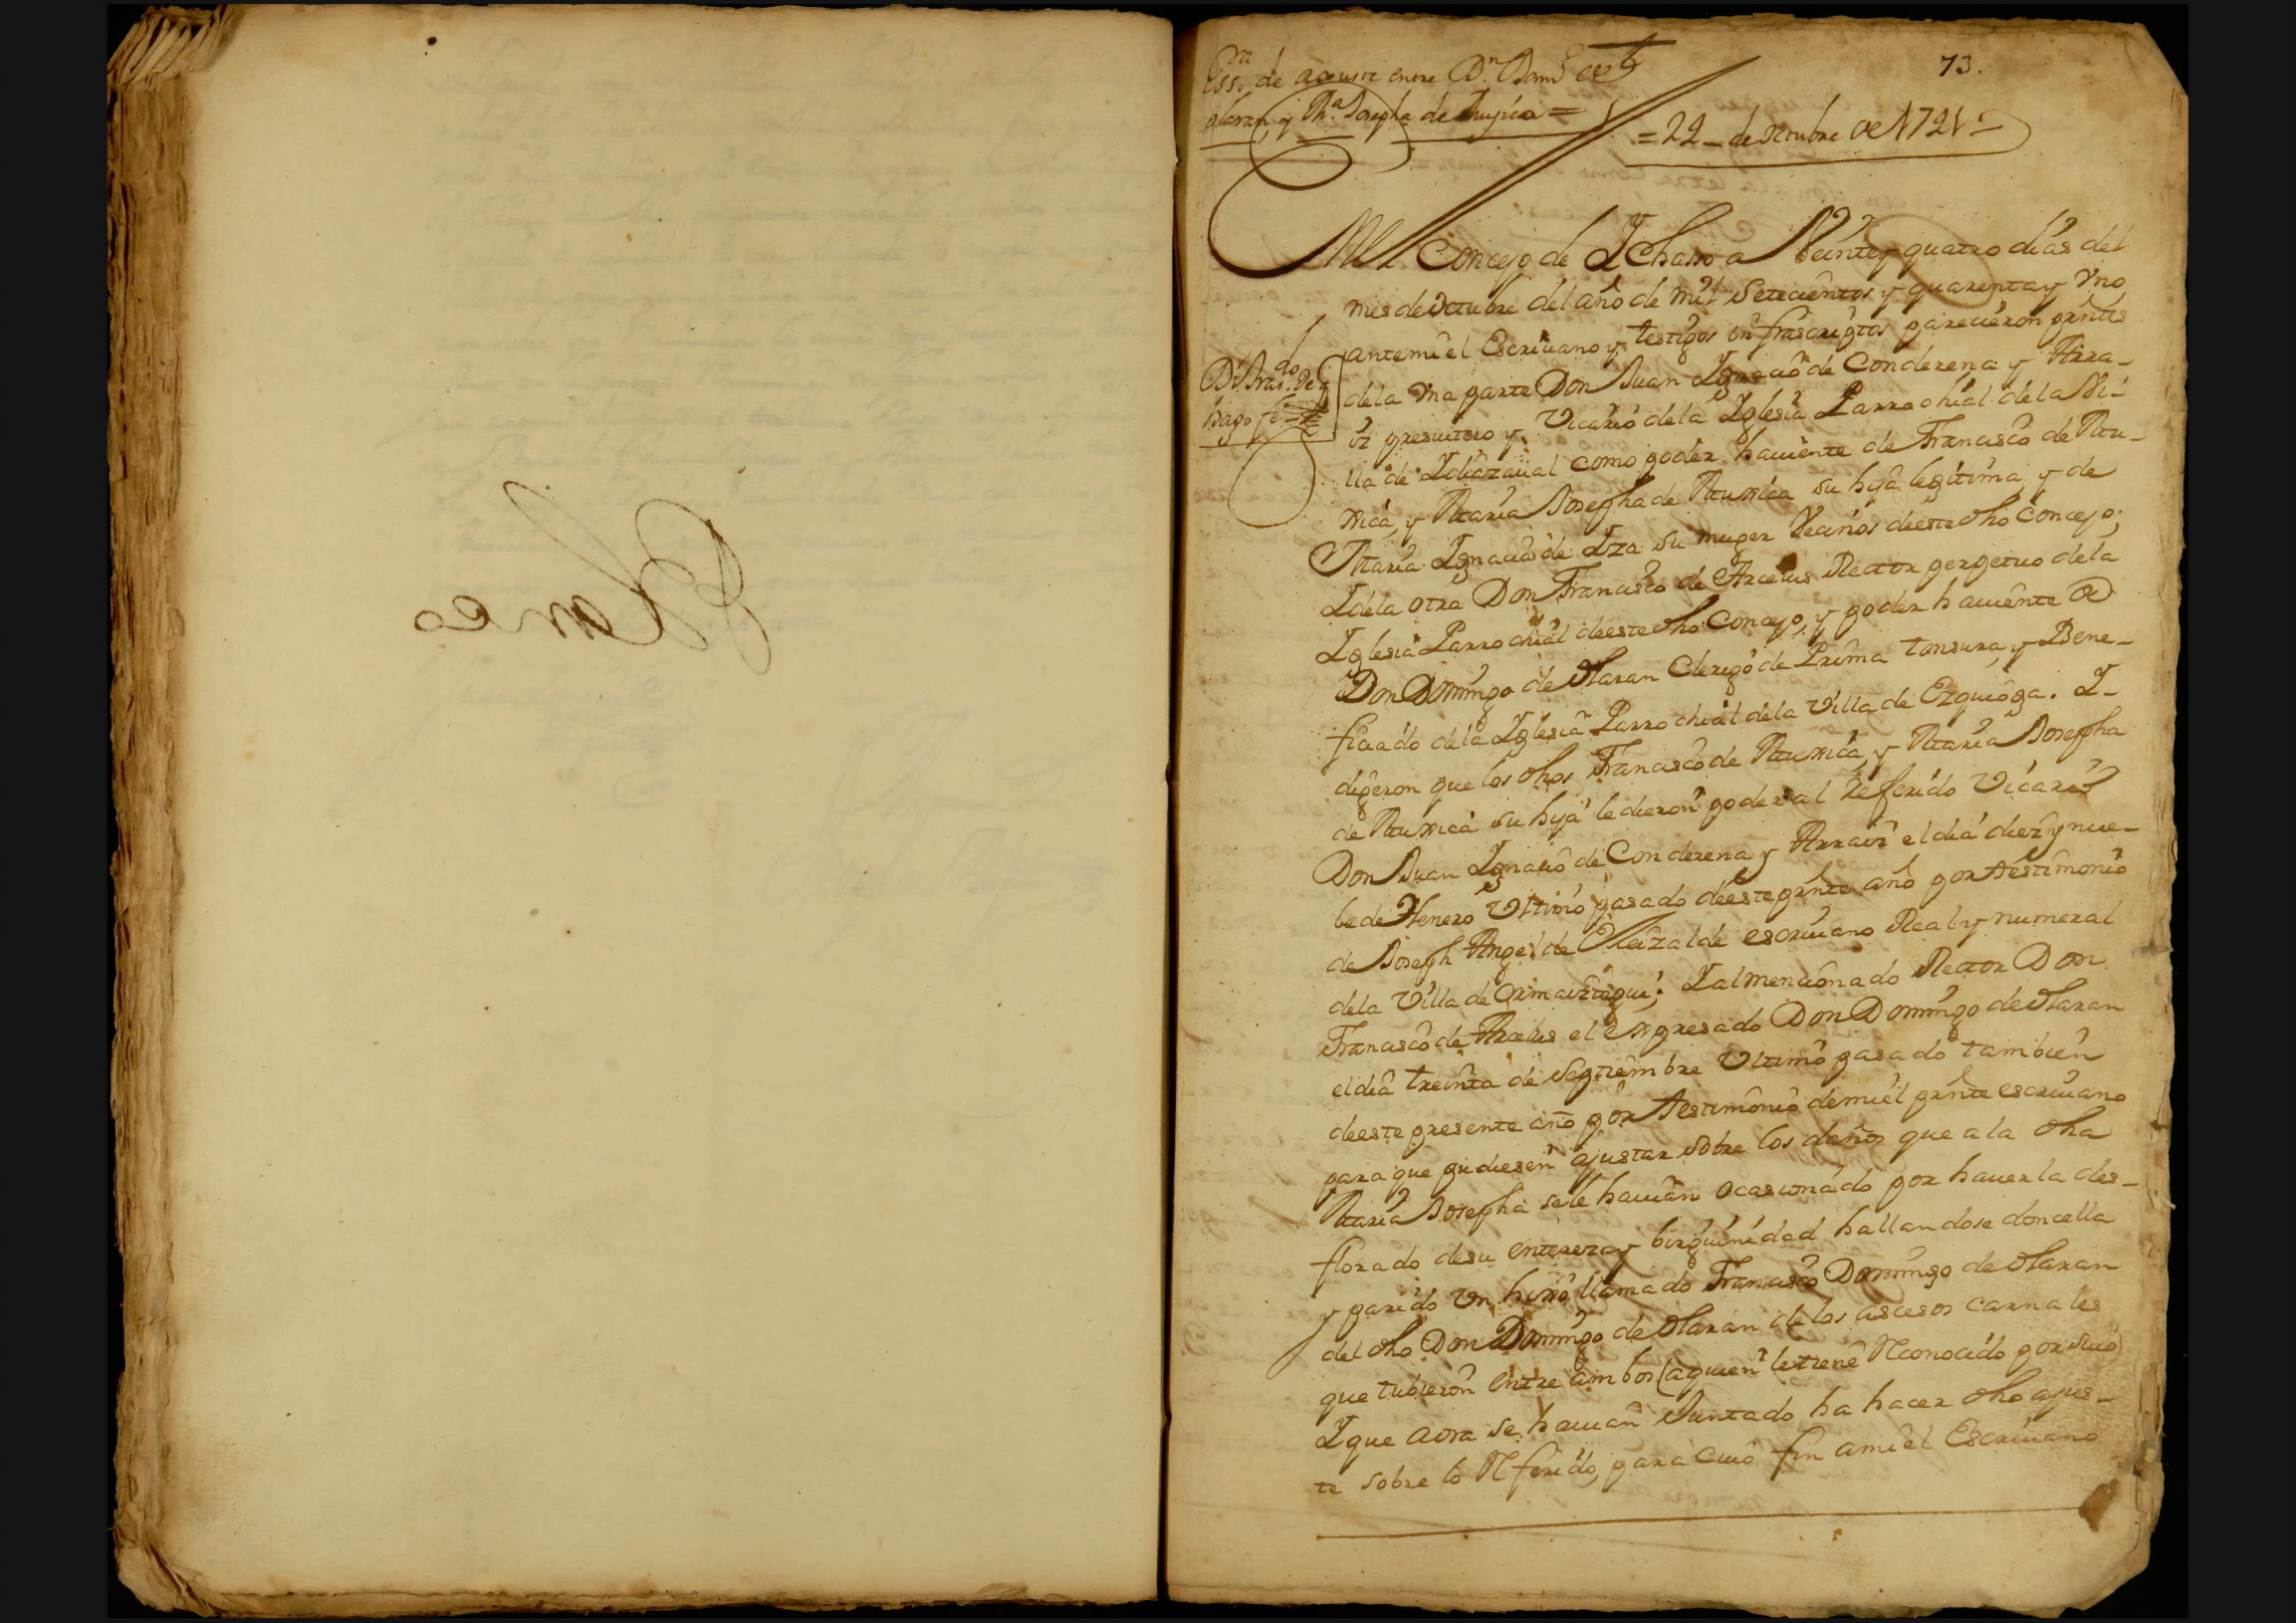 Ess.ra de ajuste entre D.n Dom.o de
olaran y M.a Josepha de Mujica =
73.
= 22 - de octubre de 1741 -
En el Concejo de Ychasso a Veinte y quatro dias del
mes de octubre del año de mil Setecientos y quarenta y Vno
ante mi el Escriuano y testigos infrascriptos parecieron prntes
de la Vna parte Don Juan Ygnacio de Conderena y Arra-
iz presuitero y Vicario de la Yglesia Parrochial de la Vi-
lla de Ydiazaual como poder hauiente de Francisco de Mu-
xica, y Maria Josepha de Muxica su hija legitima, y de
Maria Ygnacia de Liza su muger Vecinos de este dho Concejo;
Y de la otra Don Francisco de Arcelus Rector perpetuo de la
Yglesia Parrochial de este dho Concejo, y poder hauiente de
Don Domingo de olaran Clerigo de Prima tonsura, y Bene-
ficiado de la Yglesia Parrochial de la Villa de Ezquioga. Y-
digeron que los dhos Francisco de Muxica, y Maria Josepha
de Muxica su hija le dieron poder al referido Vicario
Don Juan Ygnacio de Conderena y Arraiz el dia diez y nue-
be de Henero Vltimo pasado de este prnte año por testimonio
de Joseph Angel de Oleizalde escriuano Real y numeral
de la Villa de Ormaiztegui; Y al mencionado Rector Don
Francisco de Arcelus el expresado Don Domingo de olaran
el dia treinta de Septiembre Vltimo pasado tambien
de este presente año por testimonio de mi el prnte escriuano
para que pudiesen ajustar sobre los daños que a la dha
Maria Josepha se le hauian ocasionado por hauerla des-
florado de su entereza y birguinidad hallandose doncella
y parido vn hixo llamado Francisco Domingo de olaran
del dho Don Domingo de olaran de los ascesos carnales
que tubieron entre ambos (a quien le tiene Reconocido por suio)
Y que aora se hauian Juntado ha hacer dho ajus-
te sobre lo Referido, para cuio fin a mi el Escriuano
Di tras.do de q
hago fe